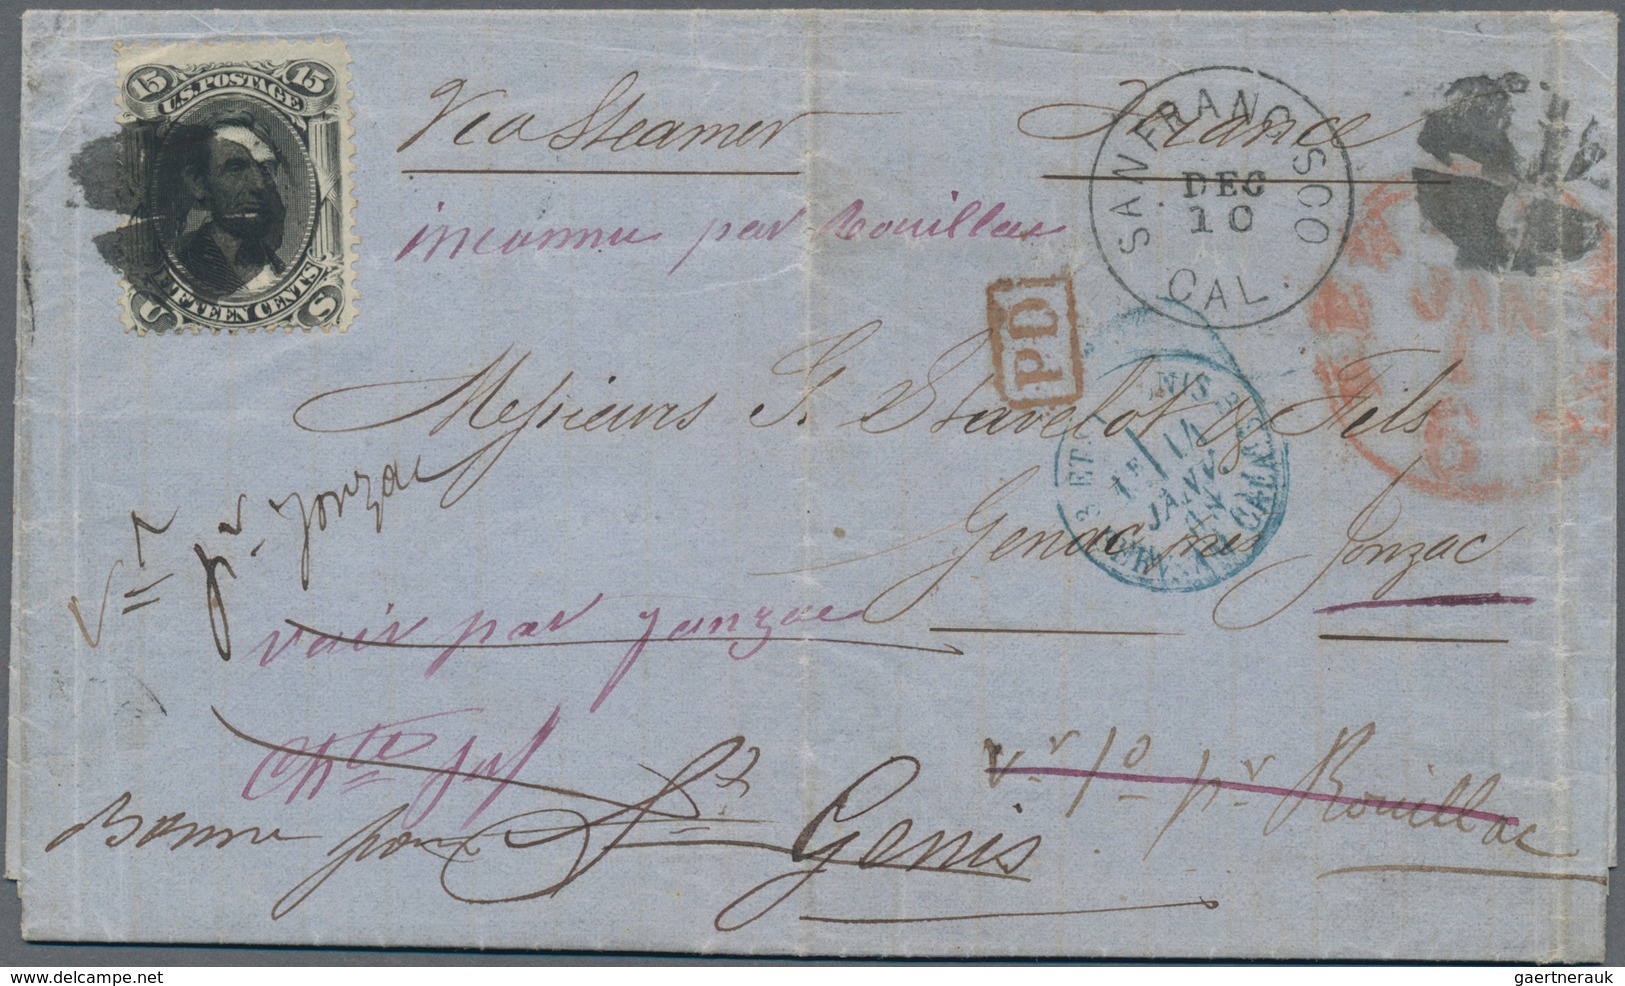 15 15
U.S. POSTAGE
FIFTEEN CENTS
U S
Via Steamer France
SAN FRANCISCO
DEC
10
CAL.
inconnu par Rouillac
PD
JAN
6
Messieurs Stavelot & Fils
14
JANV.
CALAIS
Jonzac
pr. Jonzac
voir par Jonzac
pr Rouillac
Bonne pour St Genis
delcampe.net
gaertnerauk